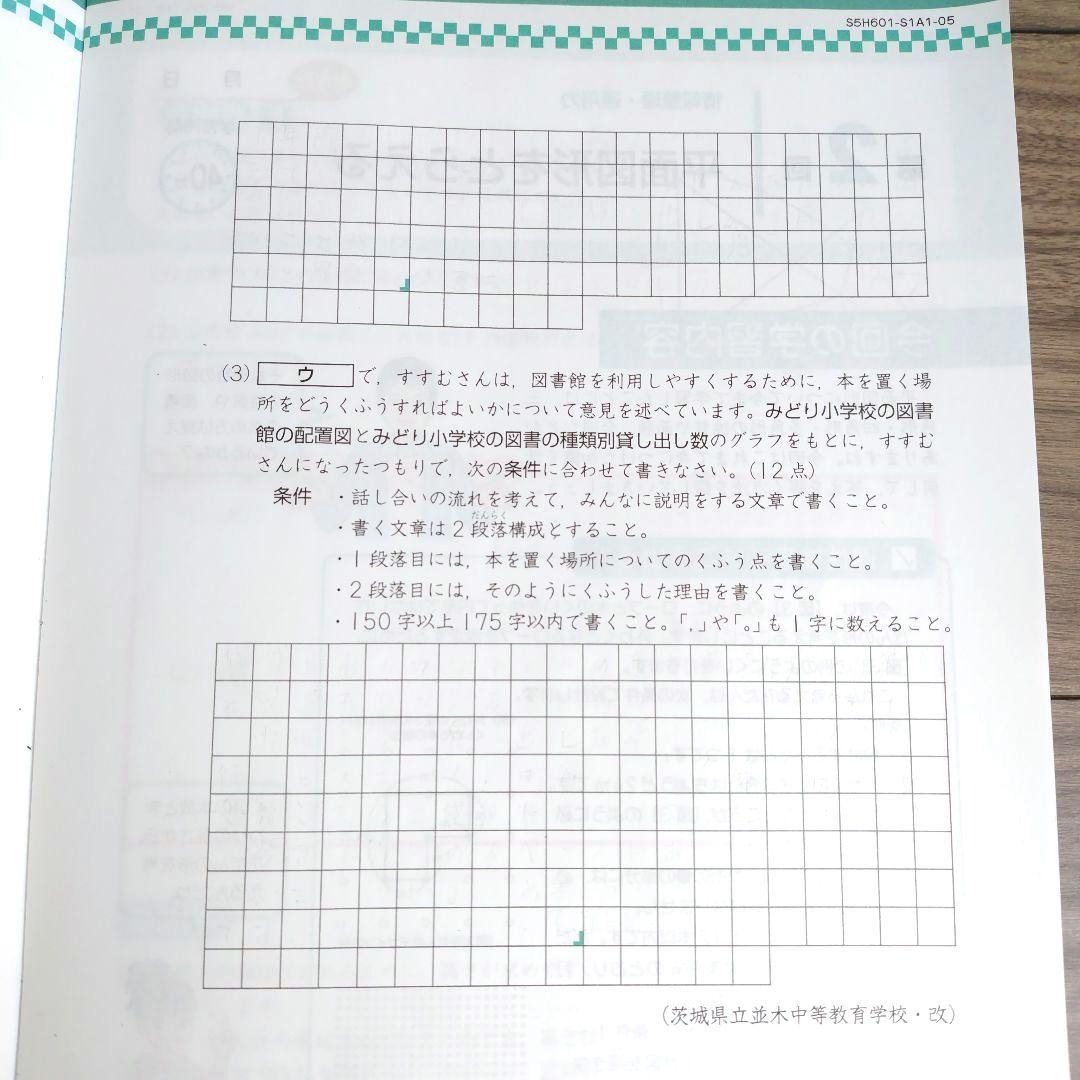 S5H601-S1A1-05
(3) ウ で，すすむさんは，図書館を利用しやすくするために，本を置く場
所をどうくふうすればよいかについて意見を述べています。みどり小学校の図書
館の配置図とみどり小学校の図書の種類別貸し出し数のグラフをもとに，すすむ
さんになったつもりで，次の条件に合わせて書きなさい。(12点)
条件 ・話し合いの流れを考えて，みんなに説明をする文章で書くこと。
だんらく
・書く文章は2段落構成とすること。
・1段落目には，本を置く場所についてのくふう点を書くこと。
・2段落目には，そのようにくふうした理由を書くこと。
・150字以上175字以内で書くこと。「，」や「。」も1字に数えること。
(茨城県立並木中等教育学校・改)